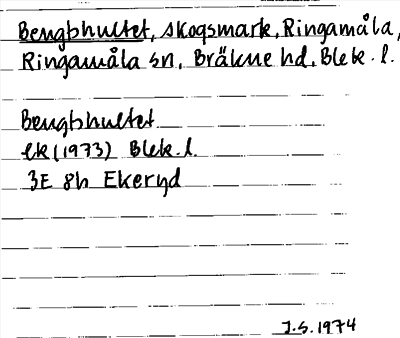 Bengtshultet, skogsmark, Ringamåla,
Ringamåla sn, Bräkne hd, Blek. l.
Bengtshultet
ek (1973) Blek. l.
3E 8h Ekeryd
J.S. 1974